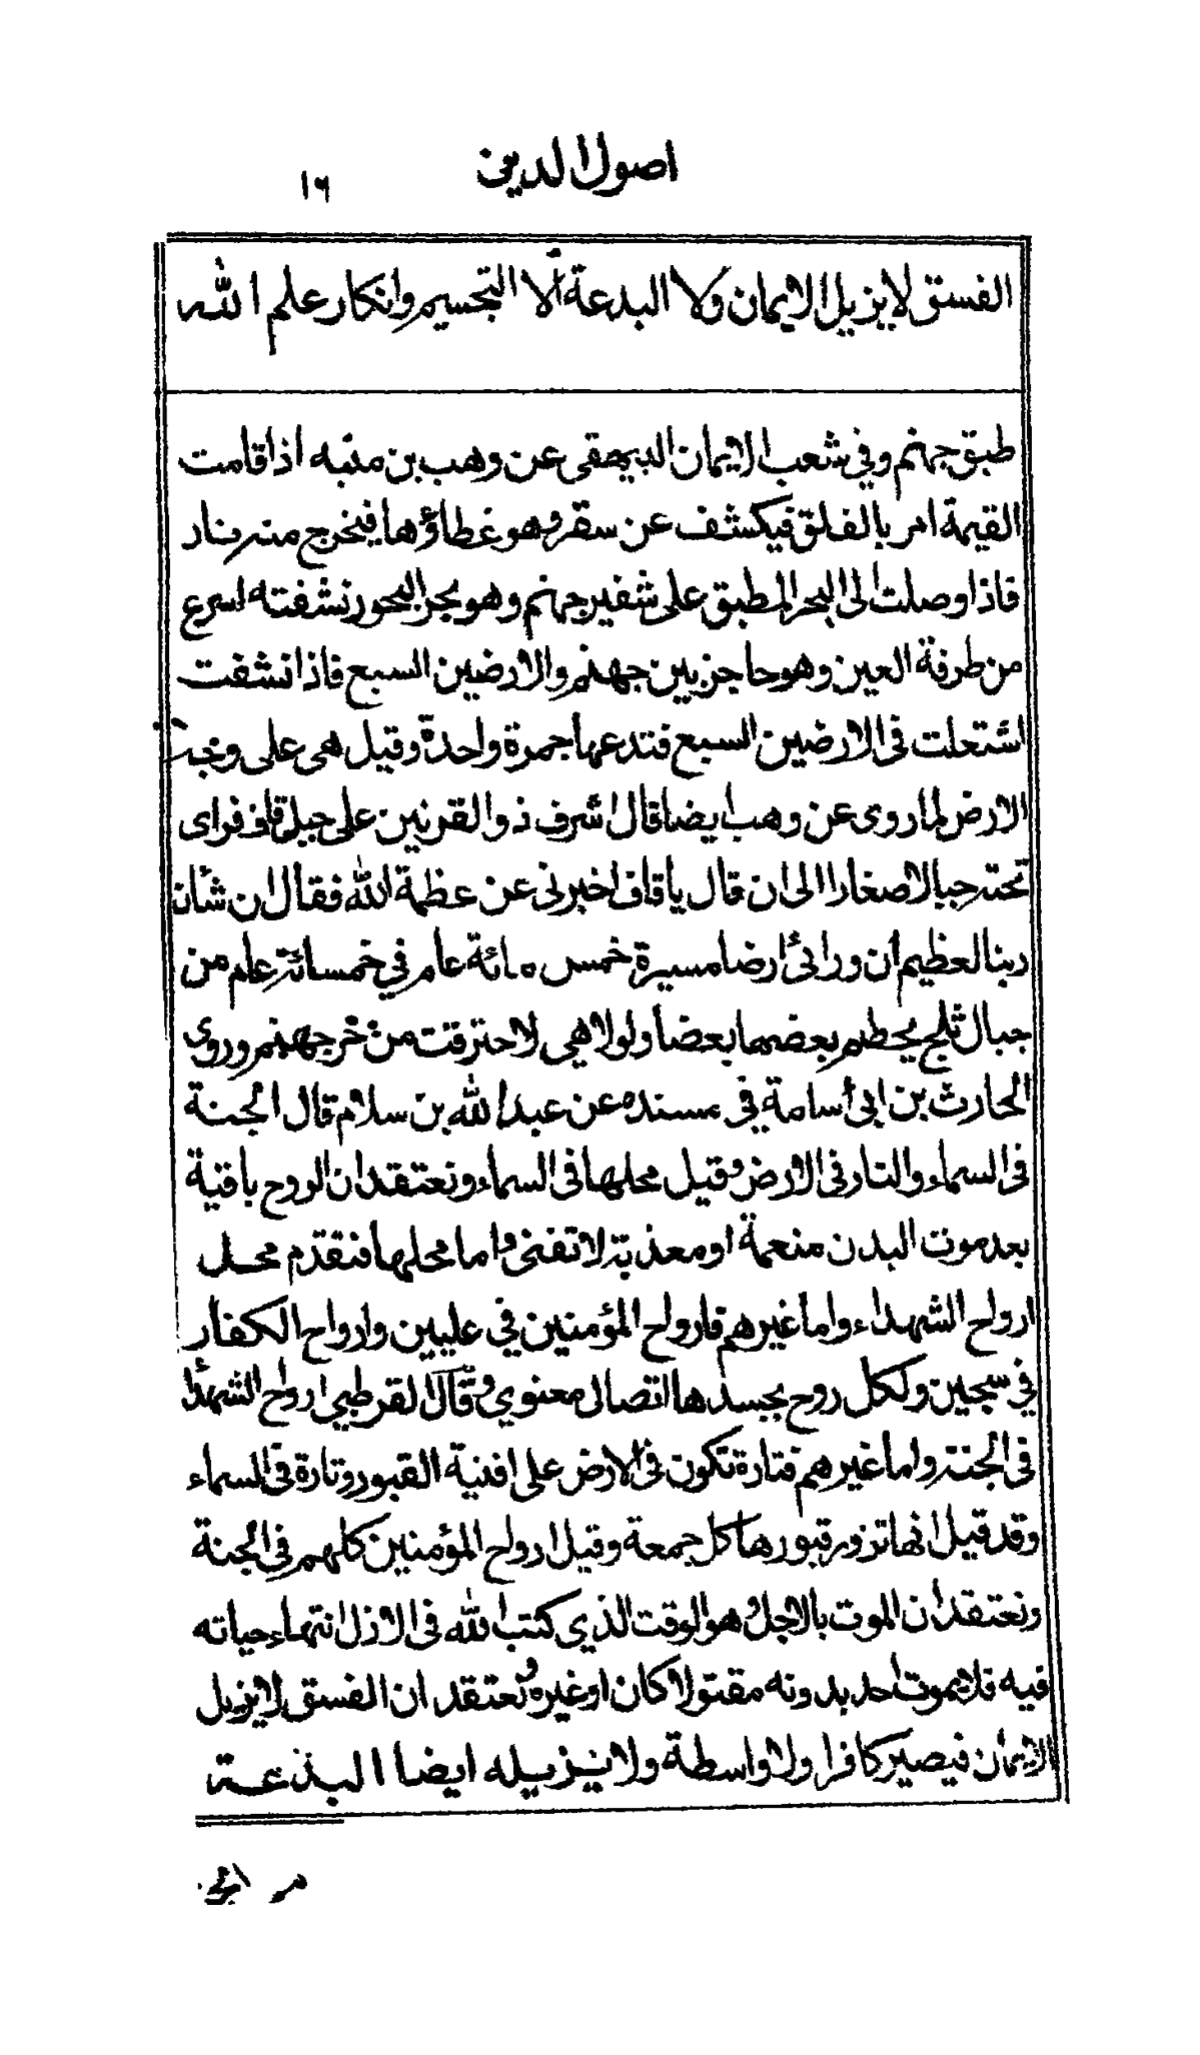 اصول الدين
١٦
الفسق لا يزيل الايمان ولا البدعة ألا التجسيم وانكار علم الله
طبق جهنم وفي شعب الايمان للبيهقى عن وهب بن منبه اذا قامت
القيمة امر بالفلق فيكشف عن سقر وهو غطاؤها فيخرج منه نار
فاذا وصلت الى البحر المطبق على شفير جهنم وهو بحر البحور نشفته اسرع
من طرفة العين وهو حاجز بين جهنم والارضين السبع فاذا نشفت
اشتعلت فى الارضين السبع فتدعها جمرة واحدة وقيل هى على وجه
الارض لما روى عن وهب ايضا قال اشرف ذو القرنين على جبل قاف فراى
تحته جبالا صغارا الى ان قال يا قاف اخبرنى عن عظمة الله فقال ان شأن
ربنا لعظيم أن ورائى أرضا مسيرة خمس مائة عام في خمسائة عام من
جبال ثلج يحطم بعضها بعضا ولولا هي لاحترقت من حر جهنم وروى
الحارث بن ابى أسامة في مسنده عن عبد الله بن سلام قال الجنة
فى السماء والنار فى الارض وقيل محلها فى السماء ونعتقد ان الروح باقية
بعد موت البدن منعمة او معذبة لا تفنى واما محلها فنقدم محل
ارواح الشهداء واما غيرهم فارواح المؤمنين في عليين وارواح الكفار
في سجين ولكل روح بجسدها اتصال معنوي وقال القرطبي ارواح الشهدا
فى الجنة واما غيرهم فتارة تكون فى الارض على افنية القبور وتارة فى السماء
وقد قيل انها تزور قبورها كل جمعة وقيل ارواح المؤمنين كلهم فى الجنة
ونعتقد أن الموت بالاجل وهو الوقت الذي كتب الله فى الازل انتهاء حياته
فيه فلا يموت احد بدونه مقتولا كان او غيره ونعتقد ان الفسق لا يزيل
الايمان فيصير كافرا ولا واسطة ولا يزيله ايضا البدعة